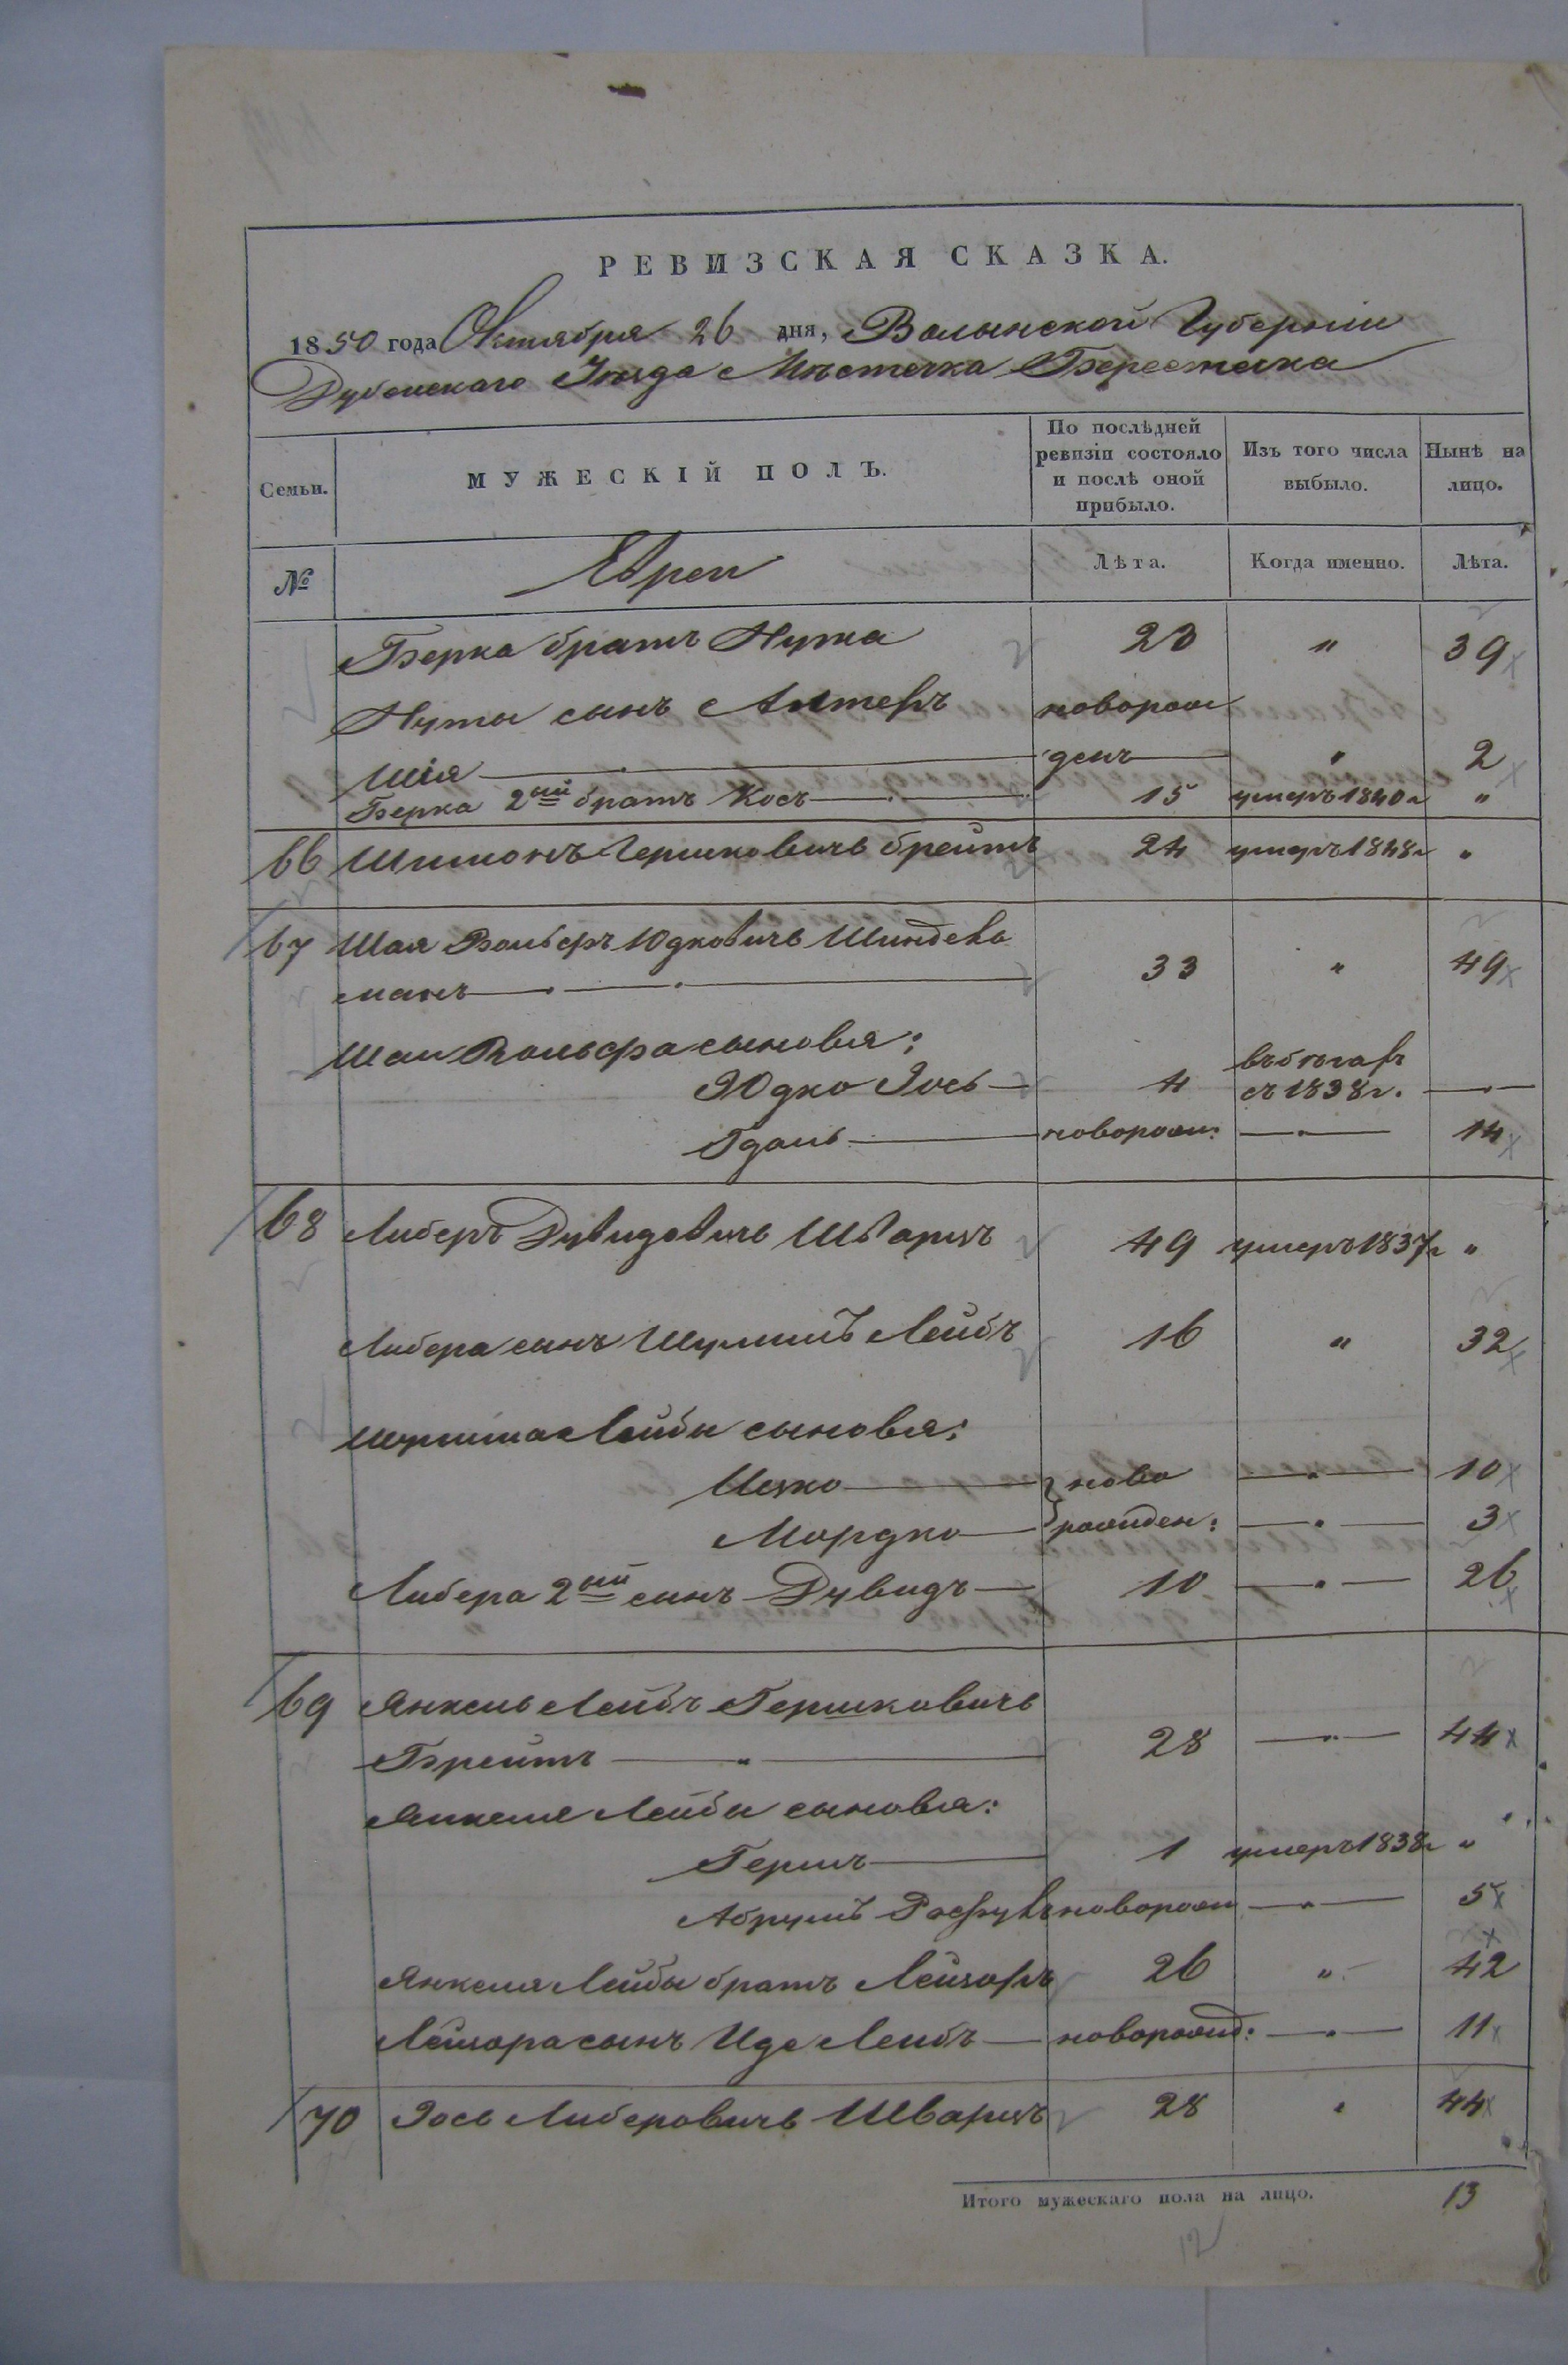 РЕВИЗСКАЯ СКАЗКА.
1850 года Октября 26 дня, Волынской Губерніи
Дубенскаго Уѣзда Мѣстечка Берестечка
Семьи. МУЖЕСКІЙ ПОЛЪ. По послѣдней ревизіи состояло и послѣ оной прибыло. Изъ того числа выбыло. Нынѣ на лицо.
№ Евреи Лѣта. Когда именно. Лѣта.
Берка братъ Нутка 23 " 39
Нуты сынъ Алтеръ новорож
Шія денъ " 2
Берка 2ой братъ Кось 15 умеръ 1840 г "
66 Шимонъ Гершковичъ Брейтъ 24 умеръ 1848 г "
67 Шая Вольфъ Юдковичъ Шиндель
манъ 33 " 49
Шаи Вольфа сыновья:
Юдко Зось 4 въ бѣгах
съ 1838 г.
Гдаль новорож: 14
68 Либеръ Дувидовичъ Шварцъ 49 умеръ 1837 г "
Либера сынъ Шулимъ Лейбъ 16 " 32
Шулима Лейбы сыновья:
Ицко ново 10
Мордко рожден: 3
Либера 2ой сынъ Дувидъ 10 26
69 Янкель Лейбъ Гершковичъ
Брейтъ 28 44
Янкеля Лейбы сыновья:
Гершъ 1 умеръ 1838 г "
Абрумъ новорож 5
Янкеля Лейбы братъ Лейзоръ 26 " 42
Лейзора сынъ Иде Лейбъ новорожд: 11
70 Зось Либеровичъ Шварцъ 28 " 44
Итого мужескаго пола на лицо. 13
12